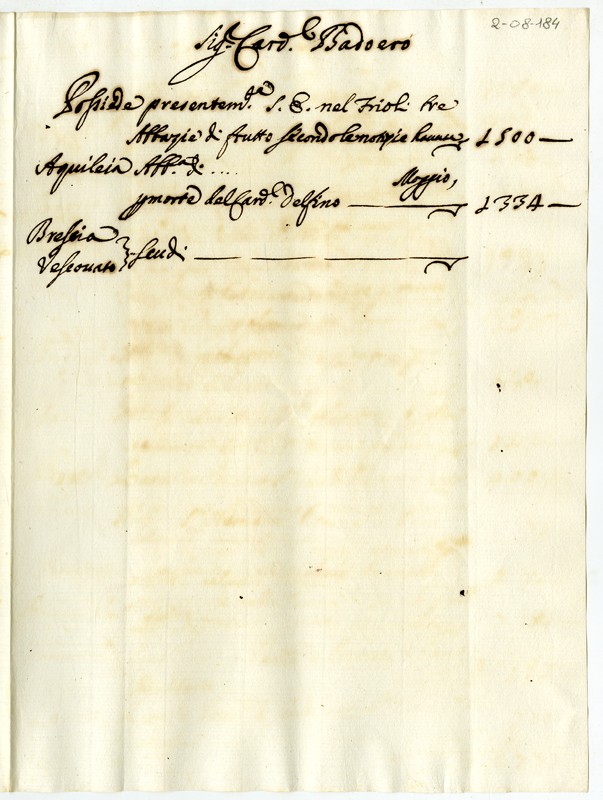 2-08-184
Sig.r Card.l Badoero
Possiede presentem.te S. E. nel Frioli tre
Abbazie di frutto secondo le notizie havute 1500
Aquileia Abb.a di .... Moggio,
p morte del Card.l Delfino 1334
Brescia
Vescovato } scudi